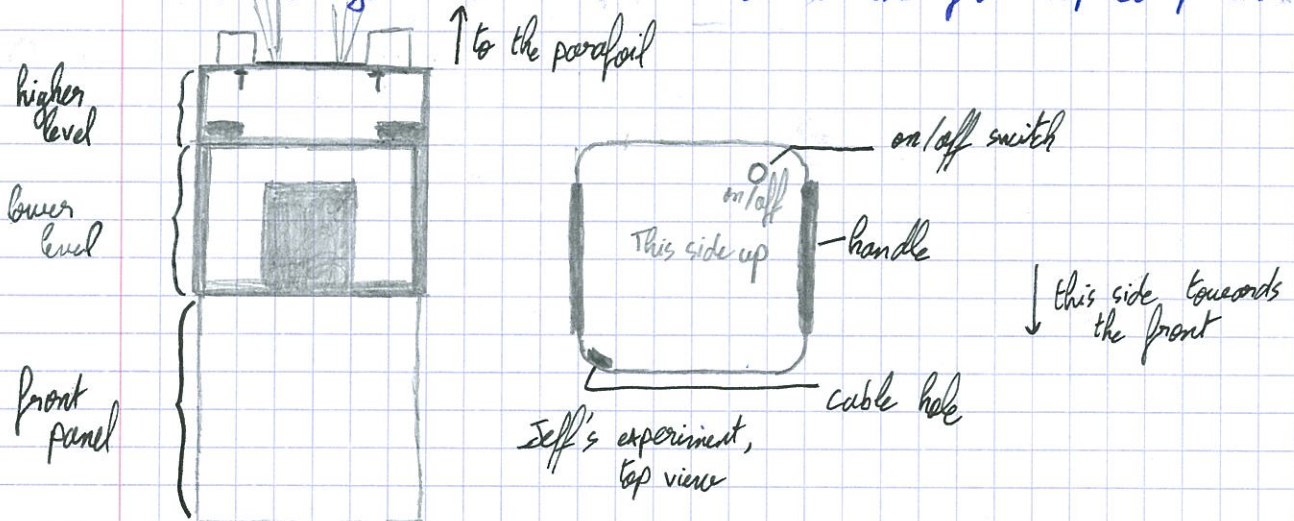 to the parafoil
higher
level
lower
level
front
panel
on/off switch
on/off
This side up
handle
this side towards
the front
cable hole
Jeff's experiment,
top view